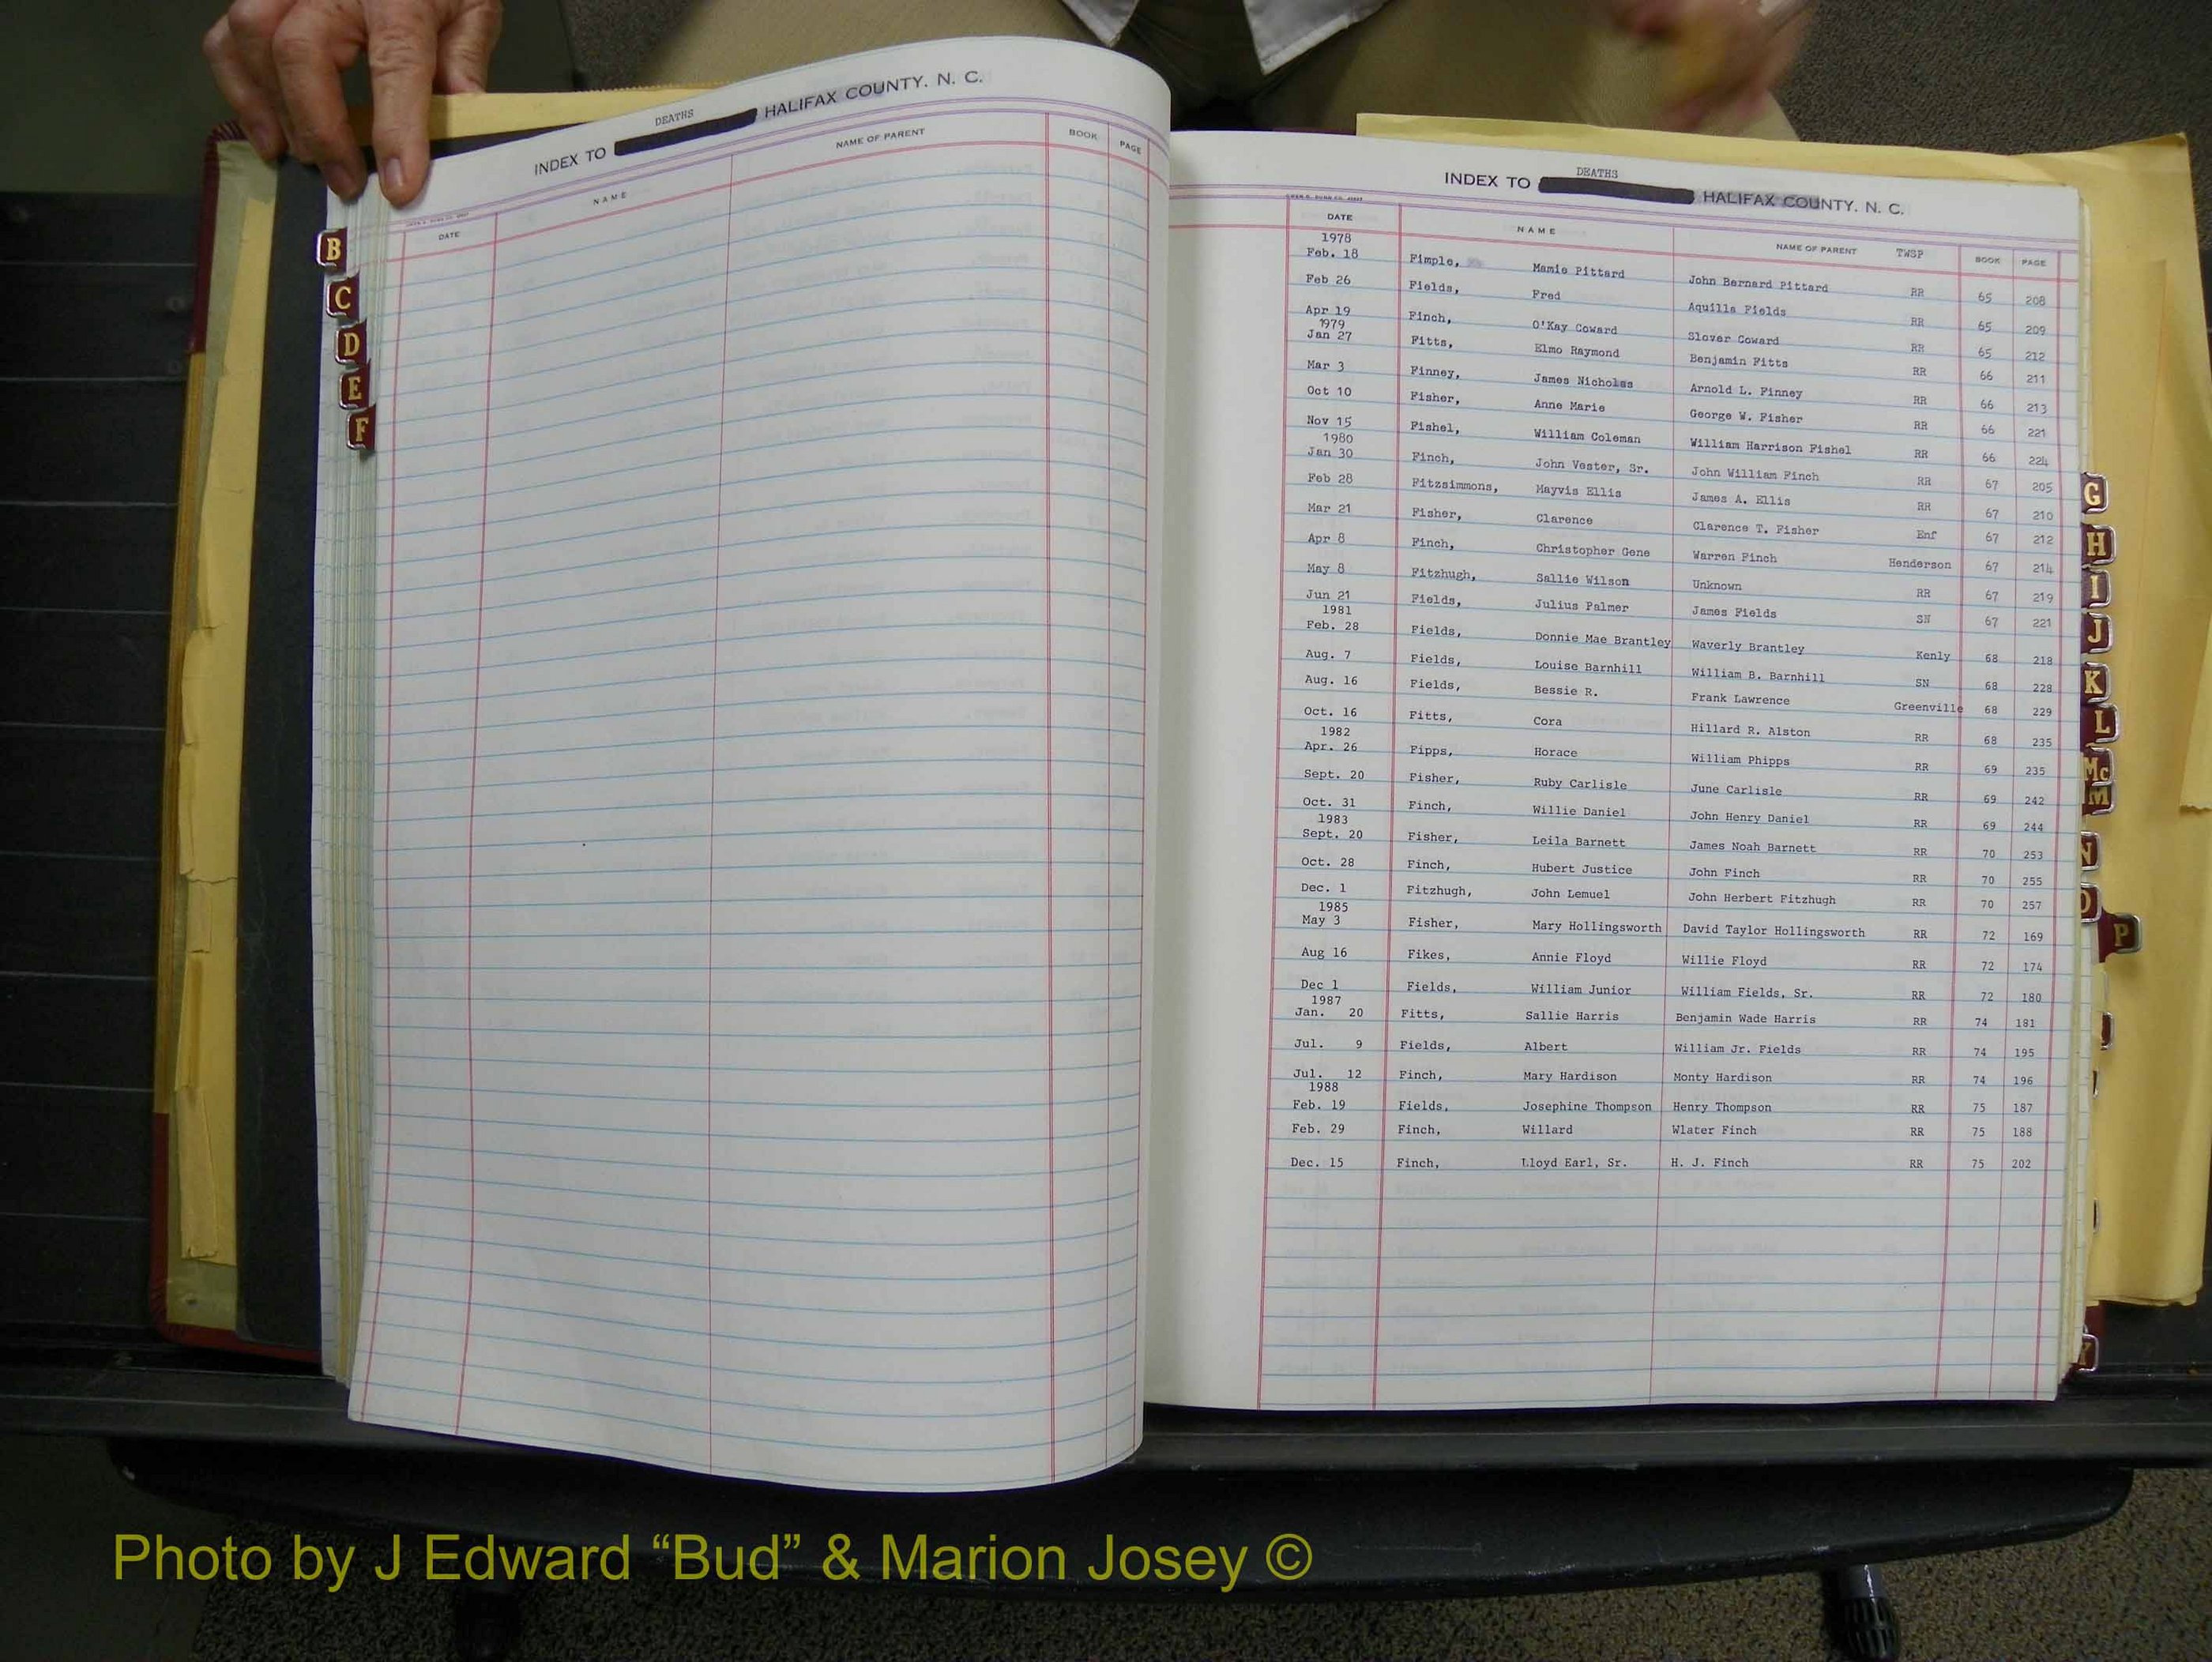 DEATHS
INDEX TO HALIFAX COUNTY. N. C.
DATE NAME NAME OF PARENT BOOK PAGE
B
C
D
E
F
DEATHS
INDEX TO HALIFAX COUNTY. N. C.
DATE NAME NAME OF PARENT TWSP BOOK PAGE
1978
Feb. 18 Fimple, Mamie Pittard John Bernard Pittard RR 65 208
Feb 26 Fields, Fred Aquilla Fields RR 65 209
Apr 19 Finch, O'Kay Coward Slover Coward RR 65 212
1979
Jan 27 Fitts, Elmo Raymond Benjamin Fitts RR 66 211
Mar 3 Finney, James Nicholas Arnold L. Finney RR 66 213
Oct 10 Fisher, Anne Marie George W. Fisher RR 66 221
Nov 15 Fishel, William Coleman William Harrison Fishel RR 66 224
1980
Jan 30 Finch, John Vester, Sr. John William Finch RR 67 205
Feb 28 Fitzsimmons, Mayvis Ellis James A. Ellis RR 67 210
Mar 21 Fisher, Clarence Clarence T. Fisher Enf 67 212
Apr 8 Finch, Christopher Gene Warren Finch Henderson 67 214
May 8 Fitzhugh, Sallie Wilson Unknown RR 67 219
Jun 21 Fields, Julius Palmer James Fields SN 67 221
1981
Feb. 28 Fields, Donnie Mae Brantley Waverly Brantley Kenly 68 218
Aug. 7 Fields, Louise Barnhill William B. Barnhill SN 68 228
Aug. 16 Fields, Bessie R. Frank Lawrence Greenville 68 229
Oct. 16 Fitts, Cora Hillard R. Alston RR 68 235
1982
Apr. 26 Fipps, Horace William Phipps RR 69 235
Sept. 20 Fisher, Ruby Carlisle June Carlisle RR 69 242
Oct. 31 Finch, Willie Daniel John Henry Daniel RR 69 244
1983
Sept. 20 Fisher, Leila Barnett James Noah Barnett RR 70 253
Oct. 28 Finch, Hubert Justice John Finch RR 70 255
Dec. 1 Fitzhugh, John Lemuel John Herbert Fitzhugh RR 70 257
1985
May 3 Fisher, Mary Hollingsworth David Taylor Hollingsworth RR 72 169
Aug 16 Fikes, Annie Floyd Willie Floyd RR 72 174
Dec 1 Fields, William Junior William Fields, Sr. RR 72 180
1987
Jan. 20 Fitts, Sallie Harris Benjamin Wade Harris RR 74 181
Jul. 9 Fields, Albert William Jr. Fields RR 74 195
Jul. 12 Finch, Mary Hardison Monty Hardison RR 74 196
1988
Feb. 19 Fields, Josephine Thompson Henry Thompson RR 75 187
Feb. 29 Finch, Willard Wlater Finch RR 75 188
Dec. 15 Finch, Lloyd Earl, Sr. H. J. Finch RR 75 202
G
H
I
J
K
L
Mc
M
N
O
P
Photo by J Edward “Bud” & Marion Josey ©